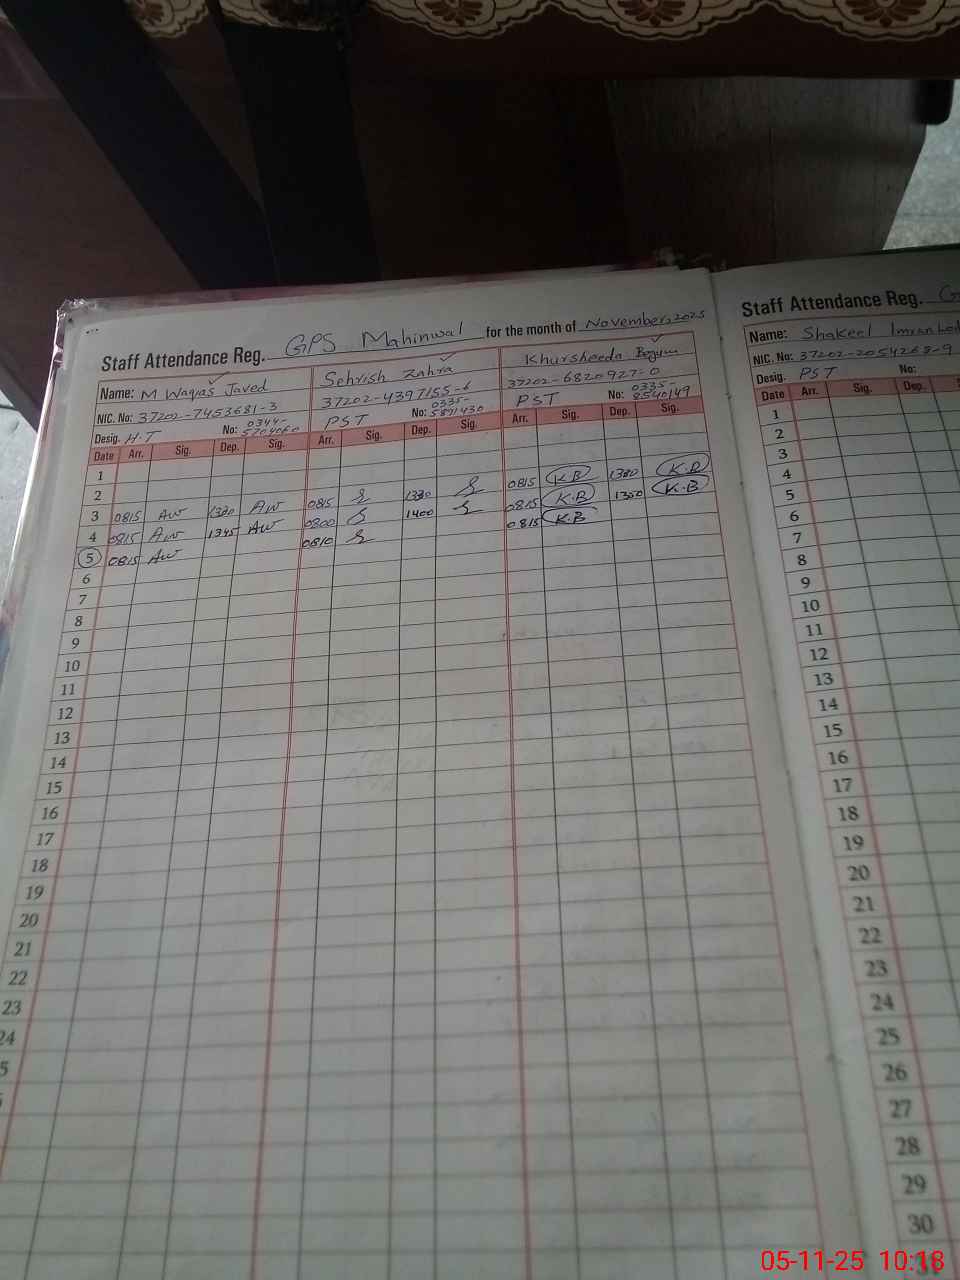 Staff Attendance Reg. GPS Mahinwal for the month of November, 2025
Name: M Waqas Javed Sehrish Zahra Khursheeda Begum
NIC. No: 37202-7453681-3 37202-4397155-6 37202-6820927-0
Desig. H.T No: 0344-5704060 PST No: 0335-5891430 PST No: 0335-8540149
Date Arr. Sig. Dep. Sig. Arr. Sig. Dep. Sig. Arr. Sig. Dep. Sig.
1
2
3 0815 AW 1330 AW 0815 1330 0815 K.B 1330 K.B
4 0815 AW 1345 AW 0800 1400 0815 K.B 1350 K.B
5 0815 AW 0810 0815 K.B
6
7
8
9
10
11
12
13
14
15
16
17
18
19
20
21
22
23
24
5
Staff Attendance Reg. G
Name: Shakeel Imran
NIC. No: 37202-2054268-9
Desig. PST No:
Date Arr. Sig. Dep.
1
2
3
4
5
6
7
8
9
10
11
12
13
14
15
16
17
18
19
20
21
22
23
24
25
26
27
28
29
30
31
05-11-25 10:18